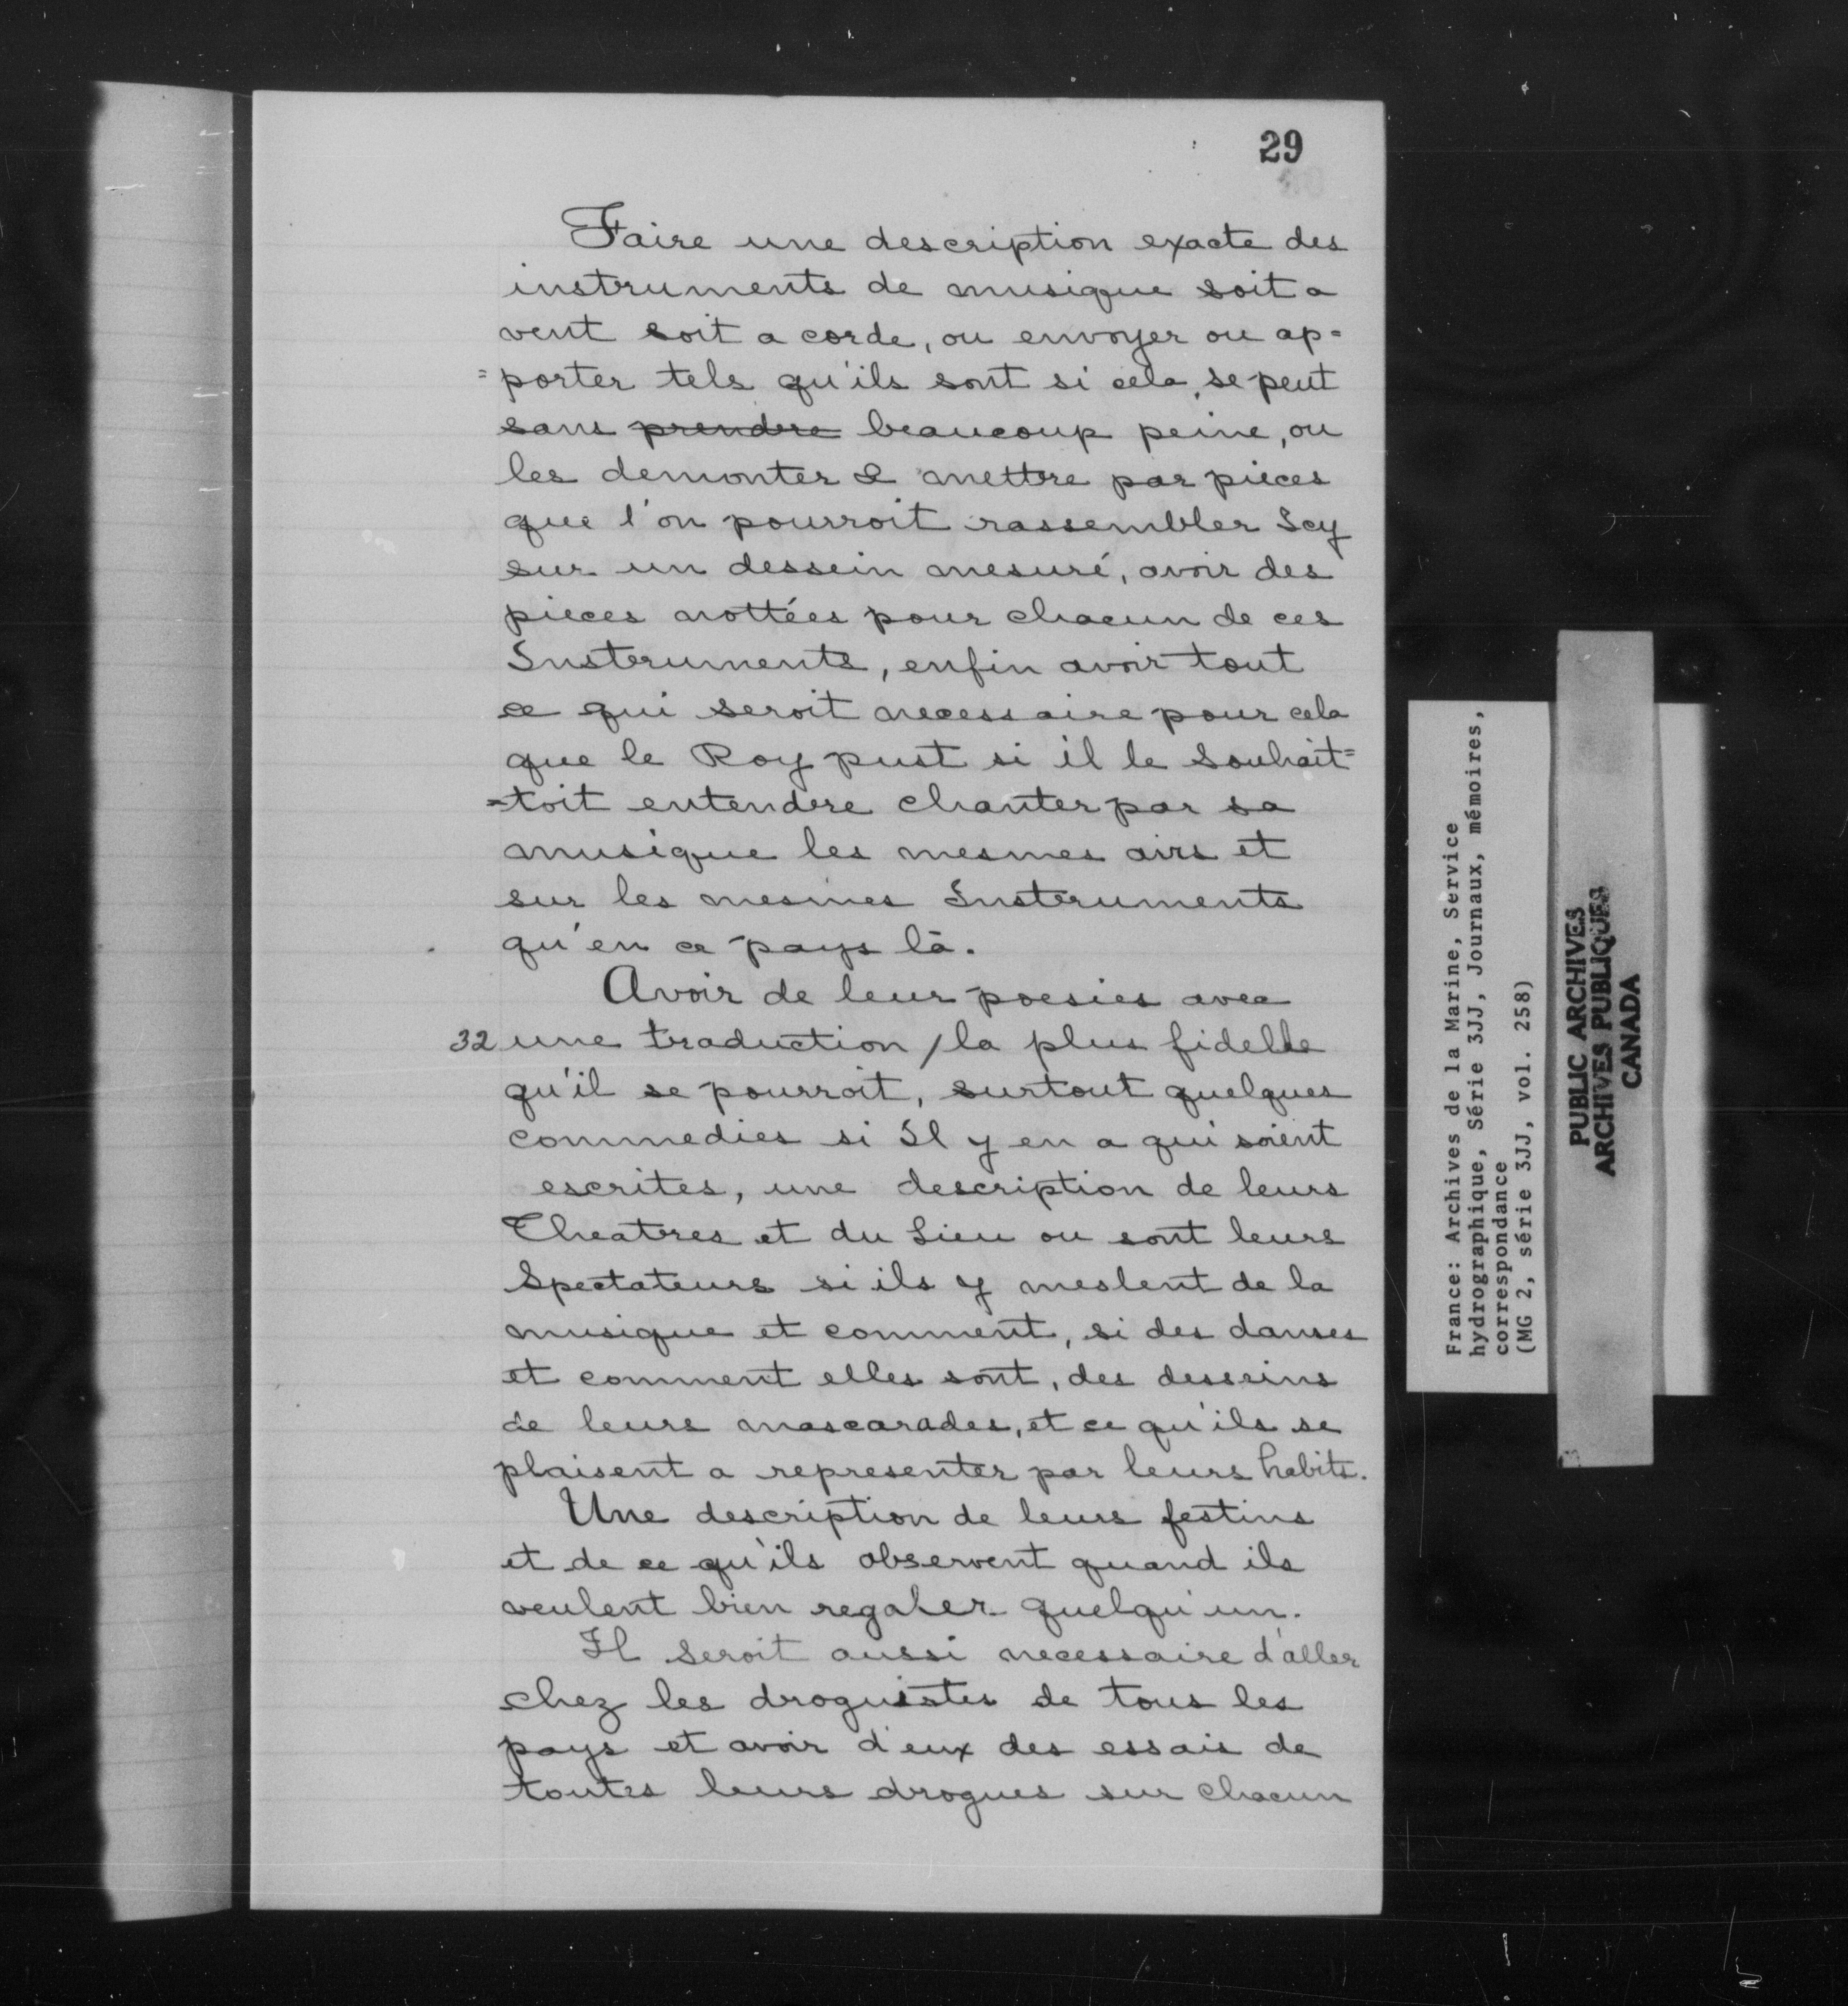 29
Faire une description exacte des
instruments de musique soit a
vent soit a corde, ou envoyer ou ap=
=porter tels qu'ils sont si cela se peut
sans prendre beaucoup peine, ou
les demonter & mettre par pieces
que l'on pourroit rassembler Icy
sur un dessein mesuré, avoir des
pieces nottées pour chacun de ces
Instruments, enfin avoir tout
ce qui seroit necessaire pour cela
que le Roy pust si il le Souhait=
=toit entendre chanter par sa
musique les mesmes airs et
sur les mesmes Instruments
qu'en ce pays là.
Avoir de leur poesies avec
32 une traduction / la plus fidelle
qu'il se pourroit, surtout quelques
commedies si Il y en a qui soient
escrites, une description de leurs
Theatres et du Lieu ou sont leurs
Spectateurs si ils y meslent de la
musique et comment, si des danses
et comment elles sont, des desseins
de leurs mascarades, et ce qu'ils se
plaisent a representer par leurs habits.
Une description de leurs festins
et de ce qu'ils observent quand ils
veulent bien regaler quelqu'un.
Il Seroit aussi necessaire d'aller
chez les droguistes de tous les
pays et avoir d'eux des essais de
toutes leurs drogues sur chacun
France: Archives de la Marine, Service
hydrographique, Série 3JJ, Journaux, mémoires,
correspondance
(MG 2, série 3JJ, vol. 258)
PUBLIC ARCHIVES
ARCHIVES PUBLIQUES
CANADA